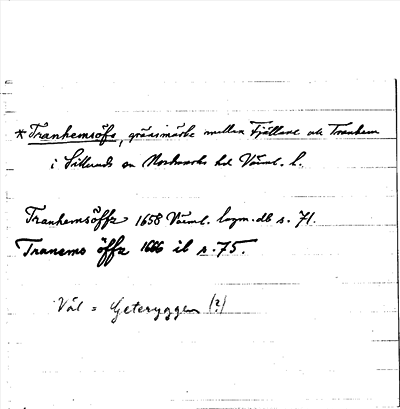 * Trankemsöfs, gränsmärke mellan Fjällane och Trankem
i Sillerud sn Nordmarks hd Värml. l.
Trankemsöffz 1658 Värml. lagm.db s. 71.
Tranems öffz 1666 ib s. 75.
Väl = Geteryggen (?)